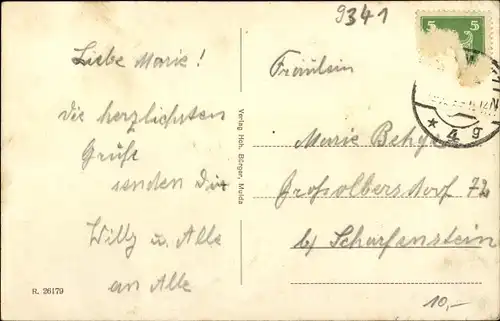 9341
5 5
Liebe Marie!
die herzlichsten
Grüße
senden Dir
Willy u. Alle
an Alle
R. 26179
Verlag Hch. Bürger, Mulda
Fräulein
Marie
Großolbersdorf 72
b/ Scharfenstein
* 4 g
10,-